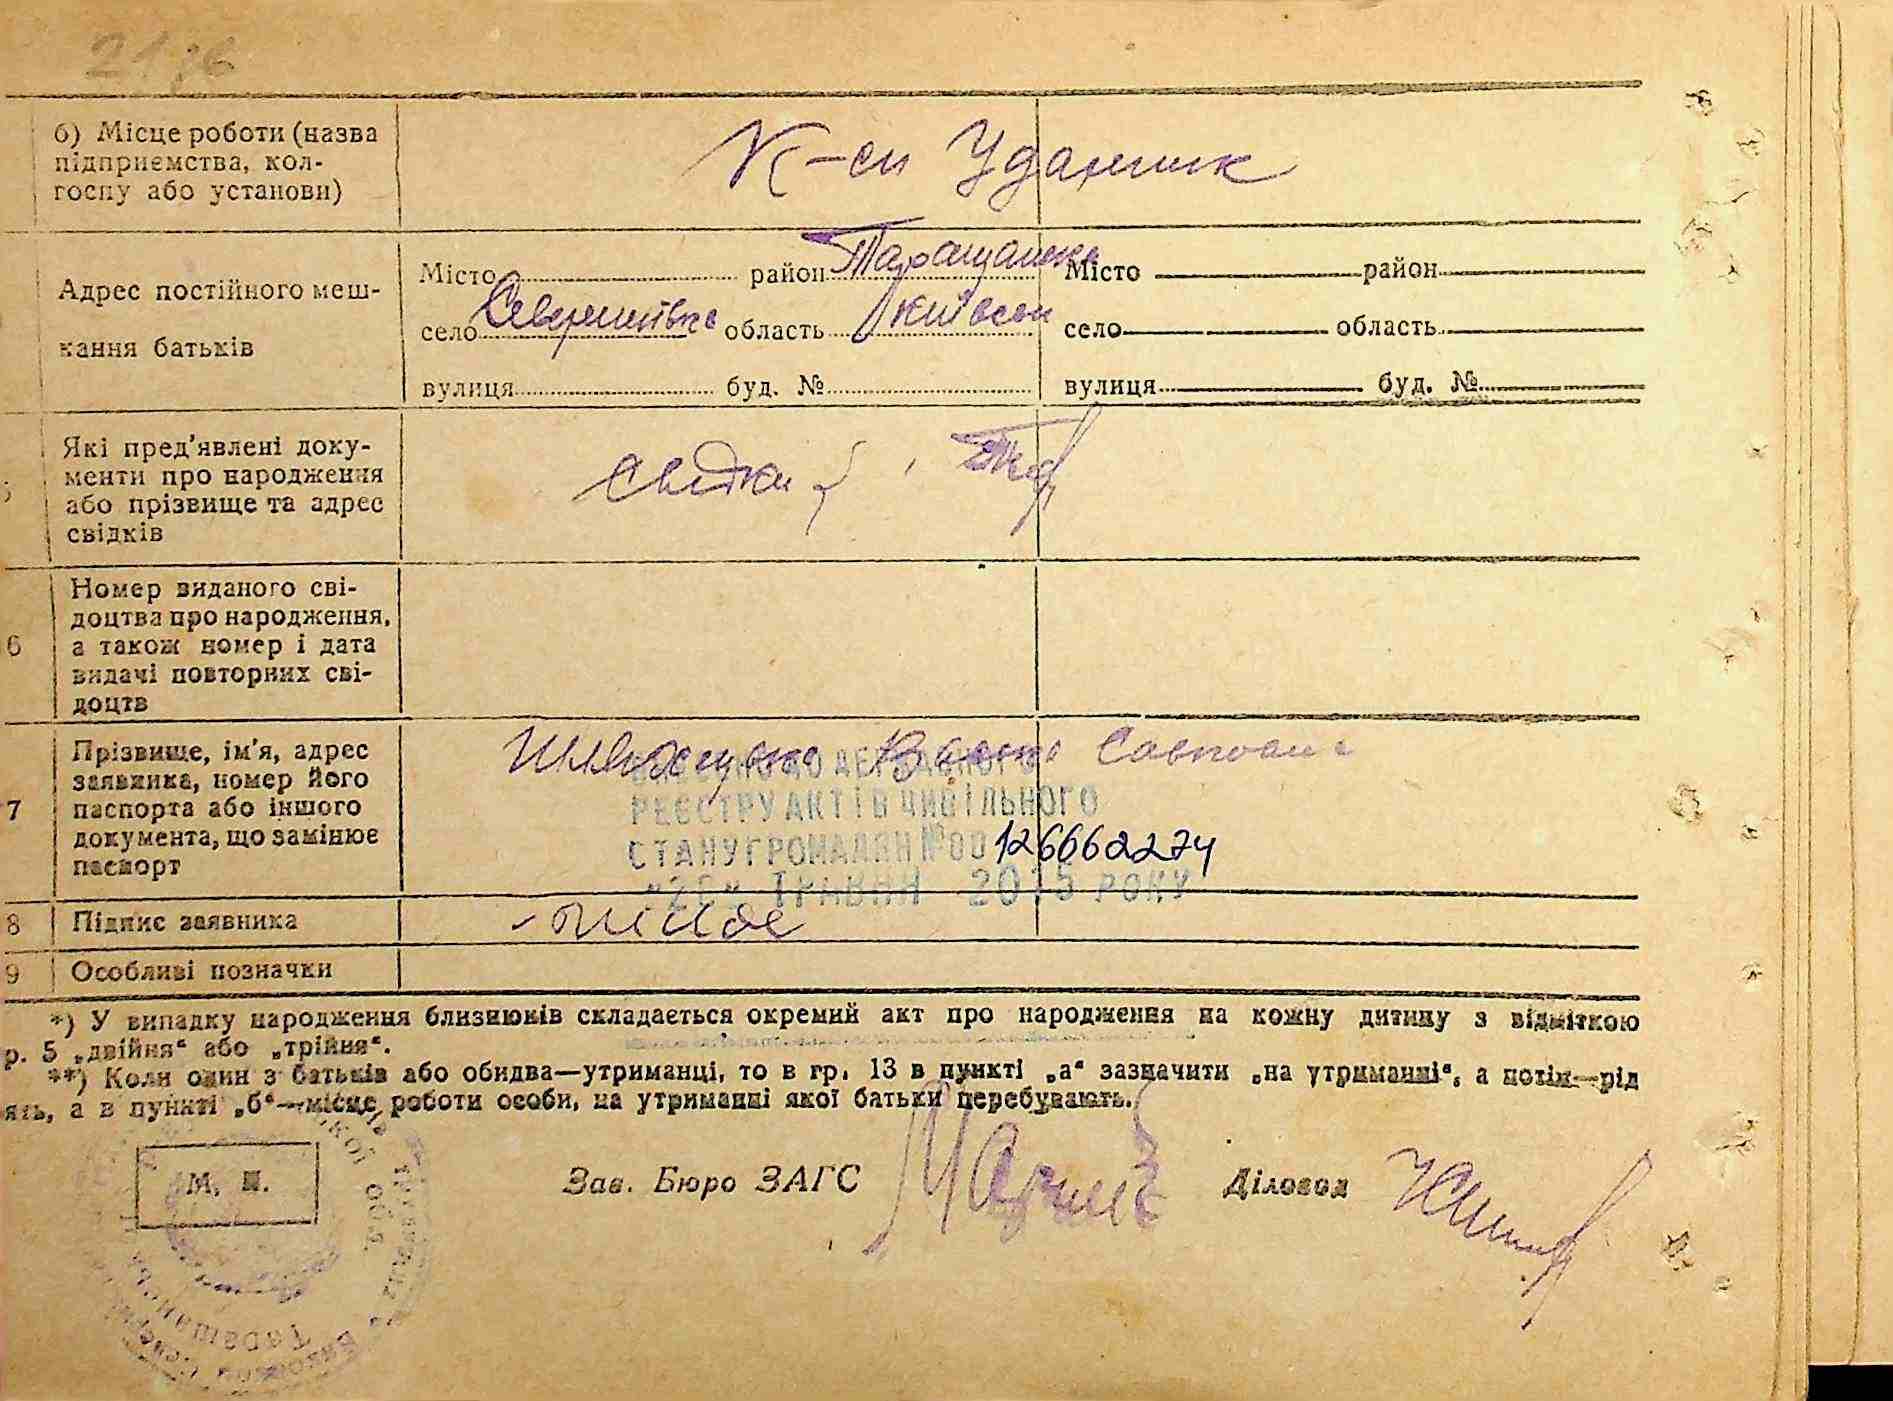 21 зв
б) Місце роботи (назва
підприємства, кол-
госпу або установи)
К-сп Ударник
Адрес постійного меш-
кання батьків
Місто район Таращанськ
село Северинівка область Київськ
вулиця буд. №
Місто район
село область
вулиця буд. №
Які пред'явлені доку-
менти про народження
або прізвище та адрес
свідків
свідки
6
Номер виданого сві-
доцтва про народження,
а також номер і дата
видачі повторних сві-
доцтв
7
Прізвище, ім'я, адрес
заявника, номер його
паспорта або іншого
документа, що замінює
паспорт
ДО ДЕРЖАВНОГО
РЕЄСТРУ АКТІВ ЦИВІЛЬНОГО
СТАНУ ГРОМАДЯН №00126662274
ТРАВНЯ 2015 РОКУ
8 Підпис заявника
9 Особливі позначки
*) У випадку народження близнюків складається окремий акт про народження на кожну дитину з відміткою
р. 5 „двійня“ або „трійня“.
**) Коли один з батьків або обидва—утриманці, то в гр. 13 в пункті „а“ зазначити „на утриманні“, а потім—рід
ять, а в пункті „б“—місце роботи особи, на утриманні якої батьки перебувають.
М. П.
Зав. Бюро ЗАГС
Діловод